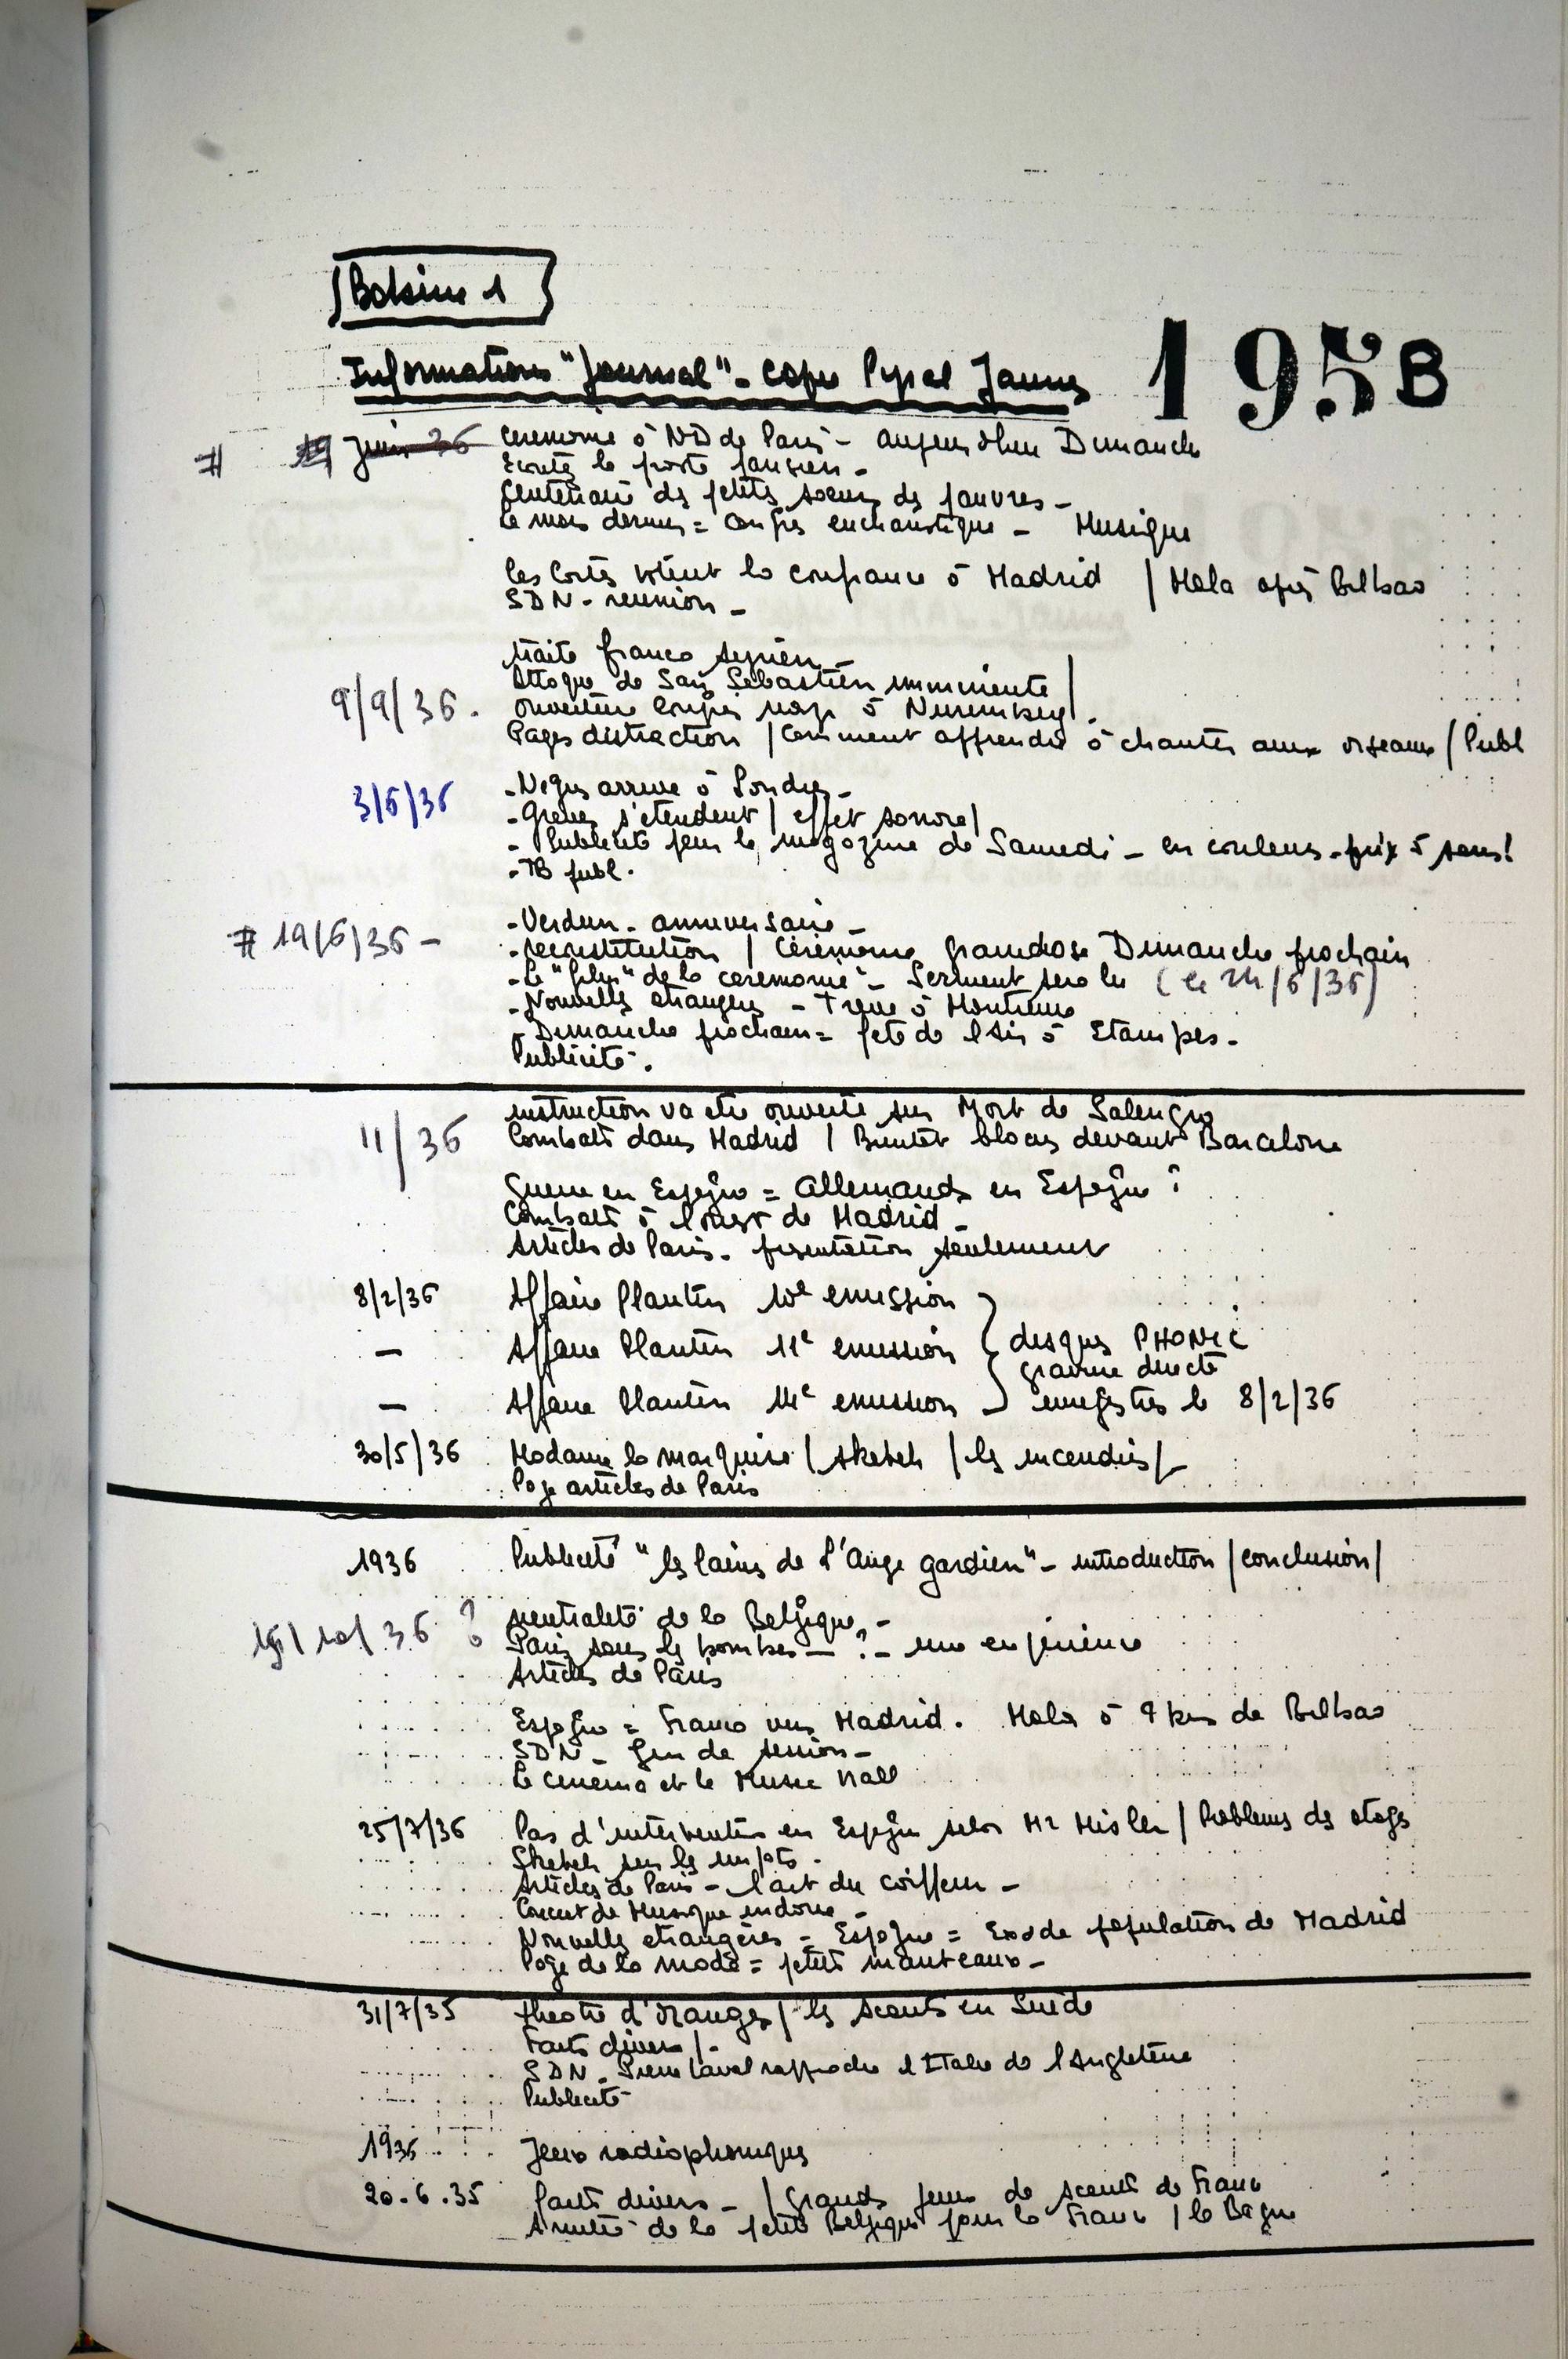 Bobine 1
Informations "Journal" - Copie Pyral Jaune
195 B
# 19 juin 36 Ceremonie à ND de Paris - aujourdhui Dimanche
Ecoutez le poste parisien -
Centenaire des petites soeurs des pauvres -
Le mois dernier = Congrès eucharistique - Musique
Les Cortès votent la confiance à Madrid / Mola après Bilbao
SDN - reunion -
traite franco syrien -
Attaque de San Sebastien imminente /
9/9/36. ouverture Congrès nazi à Nuremberg /.
Pages distraction / Comment apprendre à chanter aux oiseaux / Publ
3/6/36 - Negus arrive à Londres -
- Greves s'etendent / effet sonore /
- Publicité pour le magazine de Samedi - en couleurs - prix 5 sous!
- TB publ.
- Verdun - anniversaire -
# 19/6/36 - - reconstitution / Cérémonie grandiose Dimanche prochain
- Le "film" de la ceremonie - Serment sera lu (le 24/6/36)
- Nouvelles etrangeres - Treve à Montreux
- Dimanche prochain = fete de l'Air à Etampes -
Publicité.
instruction va etre ouverte sur Mort de Salengro
11/36 Combats dans Madrid / Bientot blocus devant Barcelone
Guerre en Espagne = Allemands en Espagne ?
Combats à l'ouest de Madrid -
Articles de Paris - presentation seulement
8/2/36 Affaire Plantin 10e emission
— Affaire Plantin 11e emission disques PHONIC
gravure directe
— Affaire Plantin 14e emission enregistres le 8/2/36
30/5/36 Madame la marquise / Sketch / les incendies /-
Page articles de Paris
1936 Publicité "les Lains de l'Ange gardien" - introduction / conclusion /
neutralité de la Belgique -
15/10/36 ? Paris sous les bombes - ? - une experience
Articles de Paris
Espagne = Franco vers Madrid. Mola à 9 km de Bilbao
SDN - fin de session -
Le cinéma et le Music Hall
25/7/36 Pas d'intervention en Espagne selon Mr Hisler / Problemes des otages
Sketch sur les impots -
Articles de Paris - l'art du coiffeur -
Concert de Musique indoue -
Nouvelles etrangères - Espagne = Exode population de Madrid
Page de la mode = petits manteaux -
31/7/35 theatre d'oranges / les scouts en Suède
Faits divers / -
SDN - Pierre Laval rapproche l'Italie de l'Angleterre
Publicité
1936 Jeux radiophoniques
20.6.35 Faits divers - / Grands jeux de scouts de France
Amitié de la petite Belgique pour la France / le Bagne